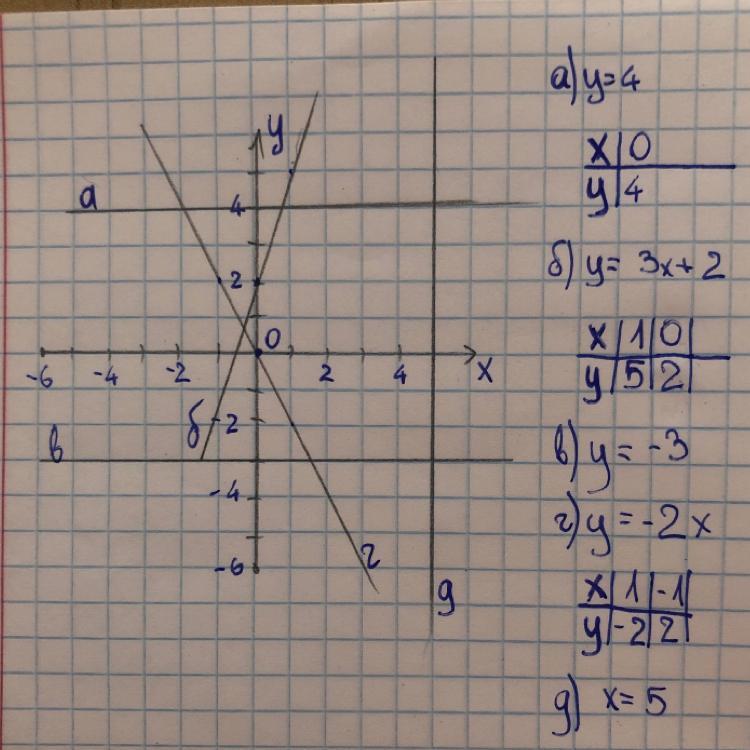 y
a
4
2
0
-6 -4 -2 2 4 x
б
-2
в
-4
г
-6
д
а) y=4
x | 0
y | 4
б) y= 3x+2
x | 1 | 0
y | 5 | 2
в) y = -3
г) y = -2x
x | 1 | -1
y | -2 | 2
д) x= 5